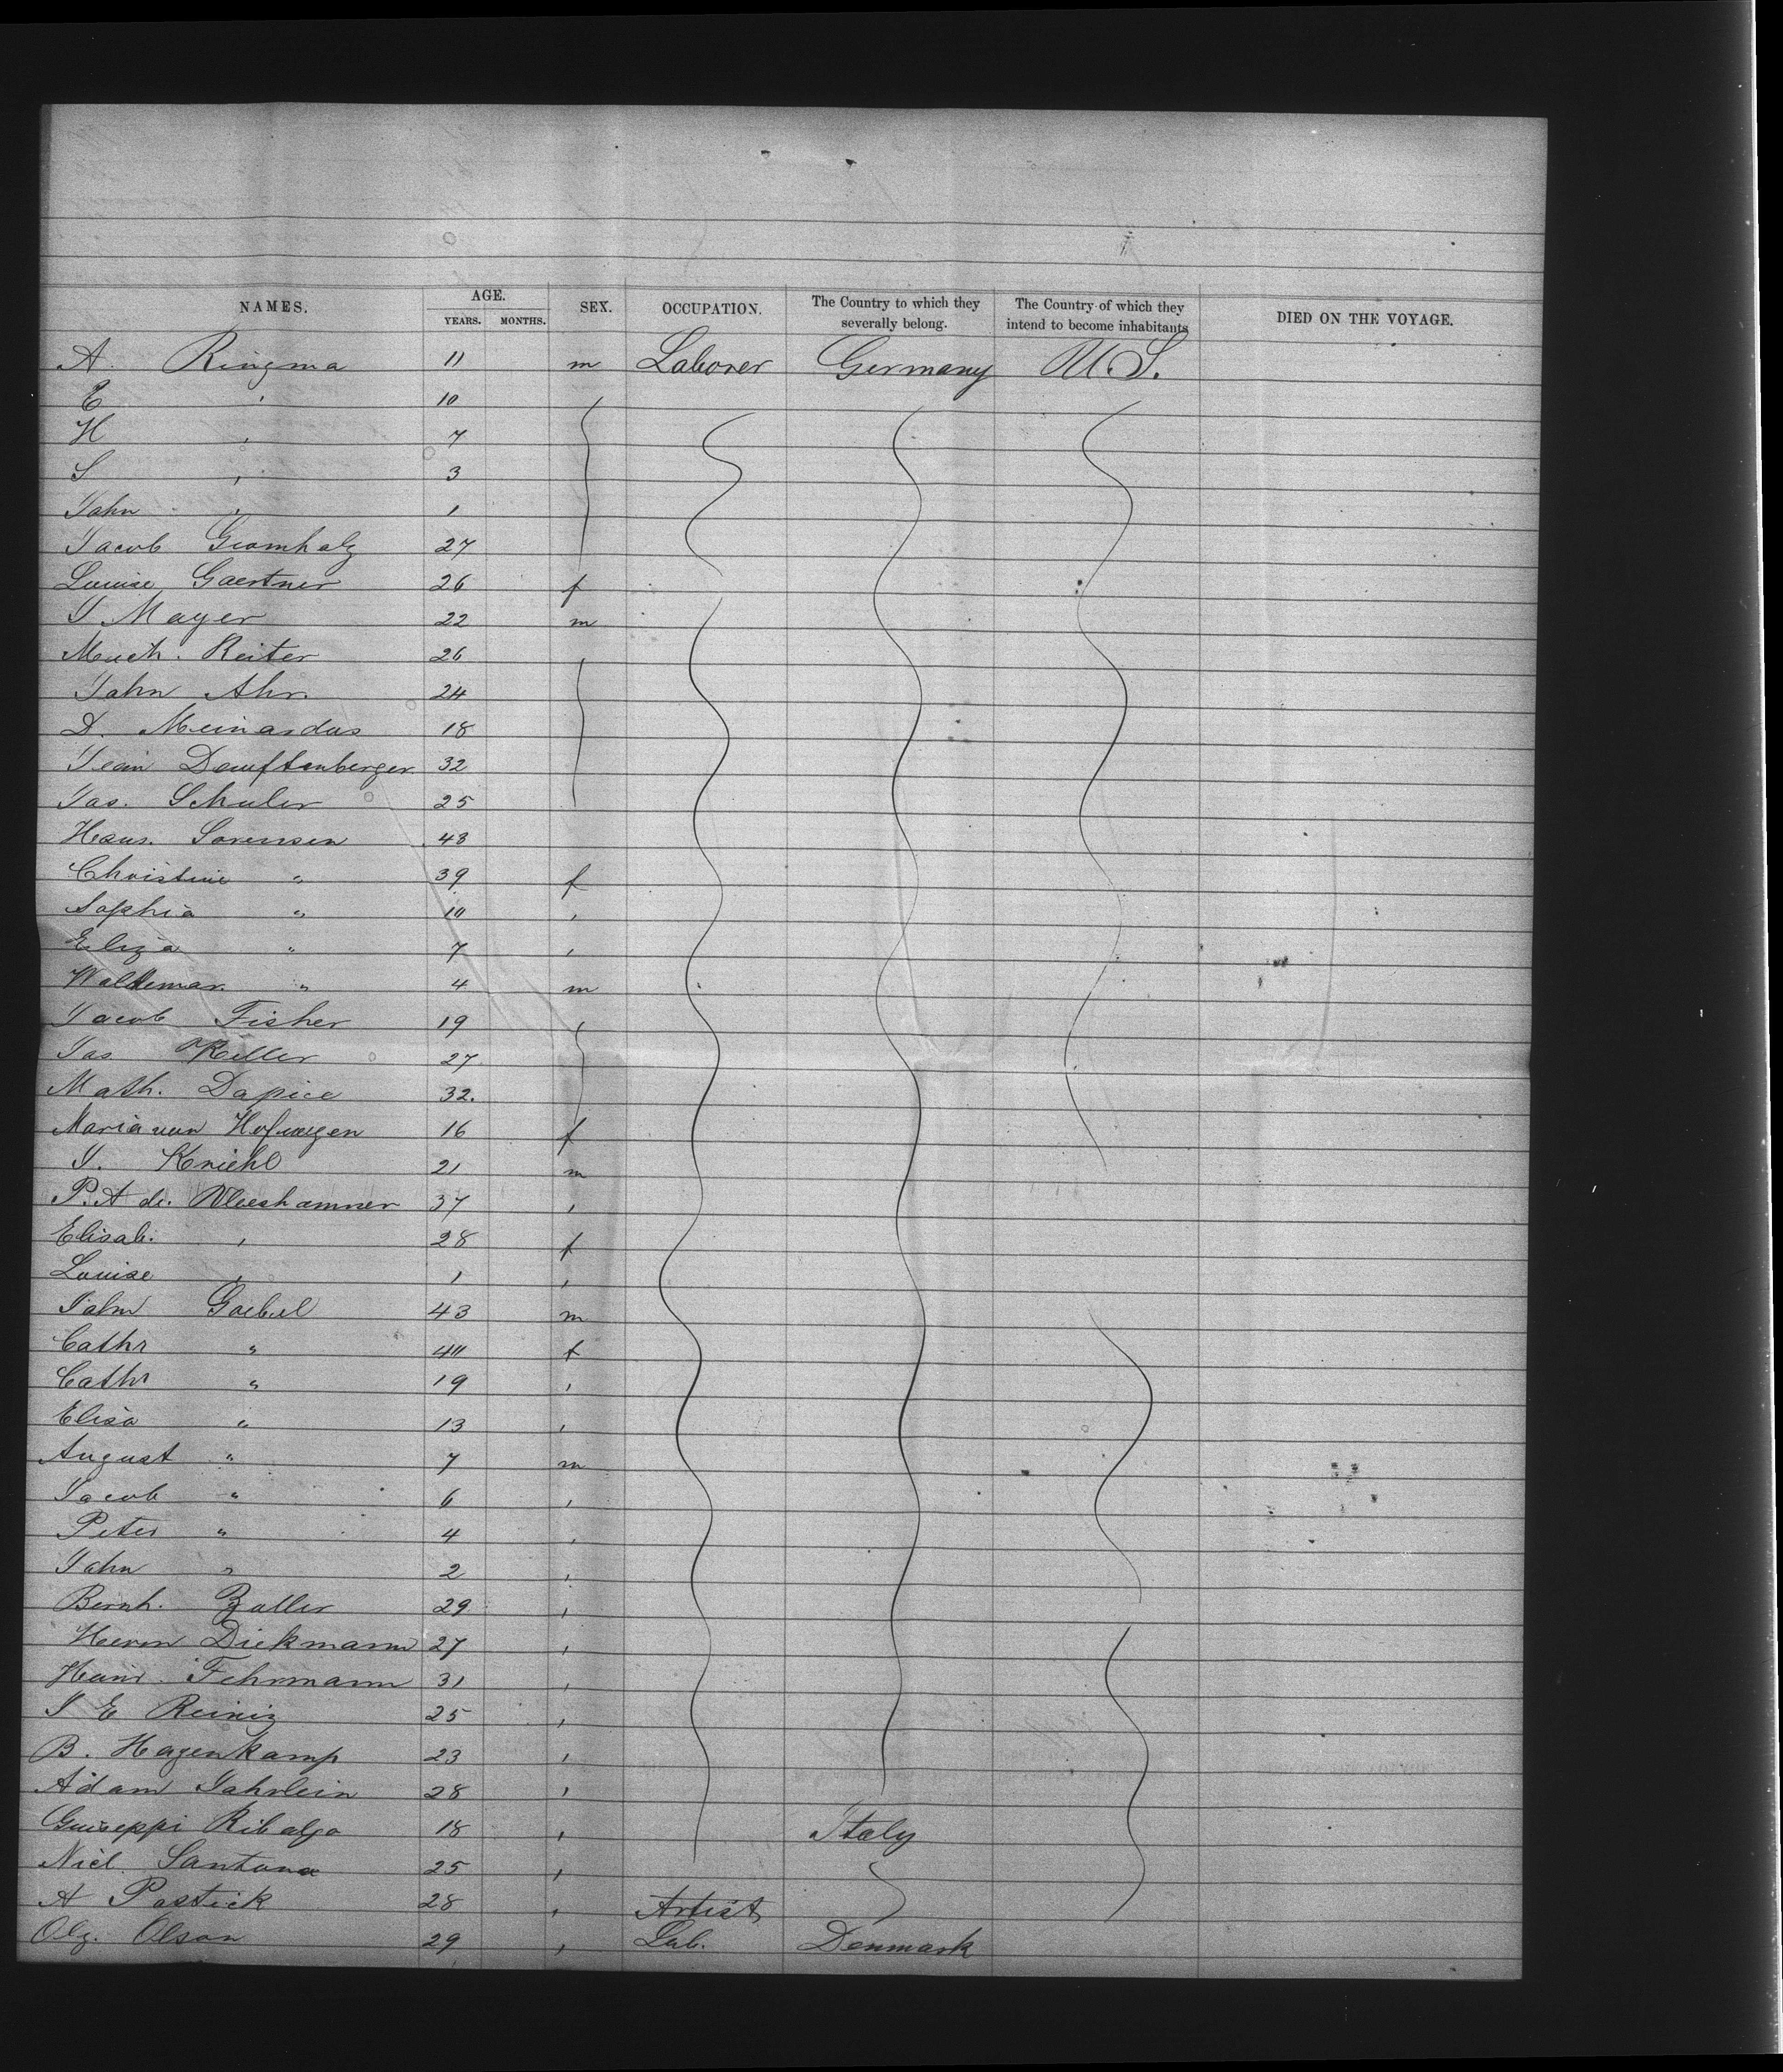 NAMES. AGE. YEARS. MONTHS. SEX. OCCUPATION. The Country to which they severally belong. The Country of which they intend to become inhabitants DIED ON THE VOYAGE.
A. Ringma 11 m Laborer Germany U.S.
E ' 10
H ' 7
S ' 3
John ' 1
Jacob Gromholz 27
Louise Gaertner 26 f
J Mayer 22 m
Reiter 26
John Ahr. 24
D. Meinardus 18
Jean 32
Jas. Schuler 25
Hans. Sorensen 43
Christine " 39 f
Sophia " 10 '
Eliza " 7 '
Waldemar. " 4 m
Jacob Fisher 19
Jas Keller 27
Math. Dapice 32.
Maria van Hofwegen 16 f
J. Kniehl 21 m
P. A de. Vleeshamner 37 '
Elisab. ' 28 f
Louise ' 1 '
John Goebel 43 m
Cathr " 40 f
Cathr " 19 '
Elisa " 13 '
August " 7 m
Jacob " 6 '
Peter " 4 '
John " 2 '
Bernh. Zoller 29 '
Herm Diekmann 27 '
Heinr. Fehrmann 31 '
J E Reiniz 25 '
B. Hagenkamp 23 '
Adam Jahrlein 28 '
Guiseppi 18 ' Italy
Nicl. Santana 25 '
A Pastick 28 ' Artist
Olg. Olson 29 ' Lab. Denmark